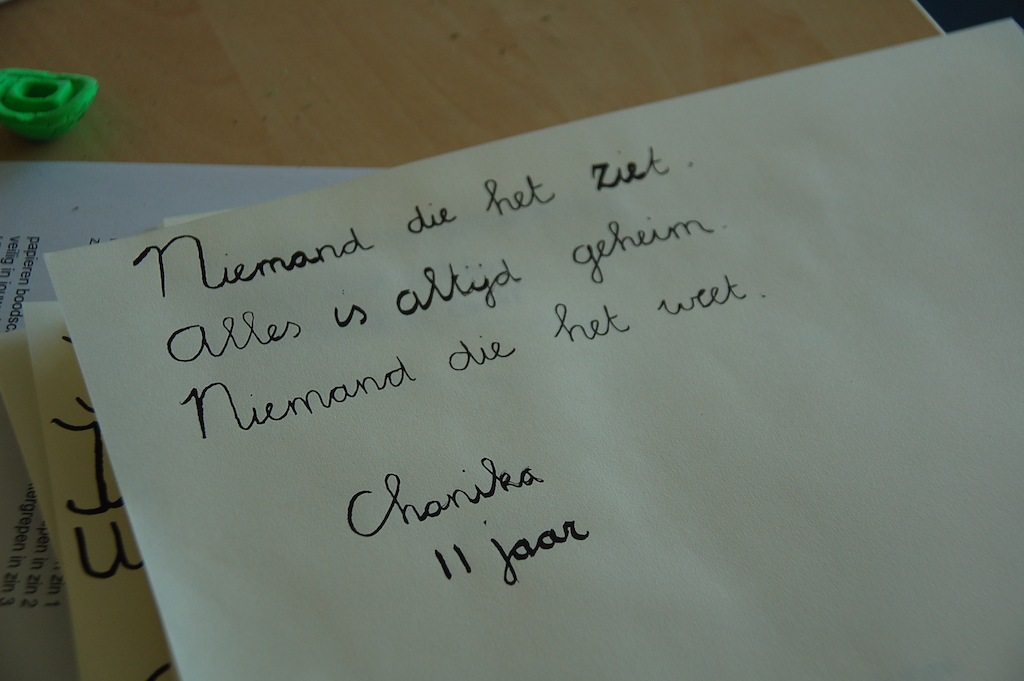 Niemand die het ziet.
Alles is altijd geheim.
Niemand die het weet.
Chanika
11 jaar
papieren boodsc
veilig in jouw
zin 1
pen in zin 2
ergrepen in zin 3